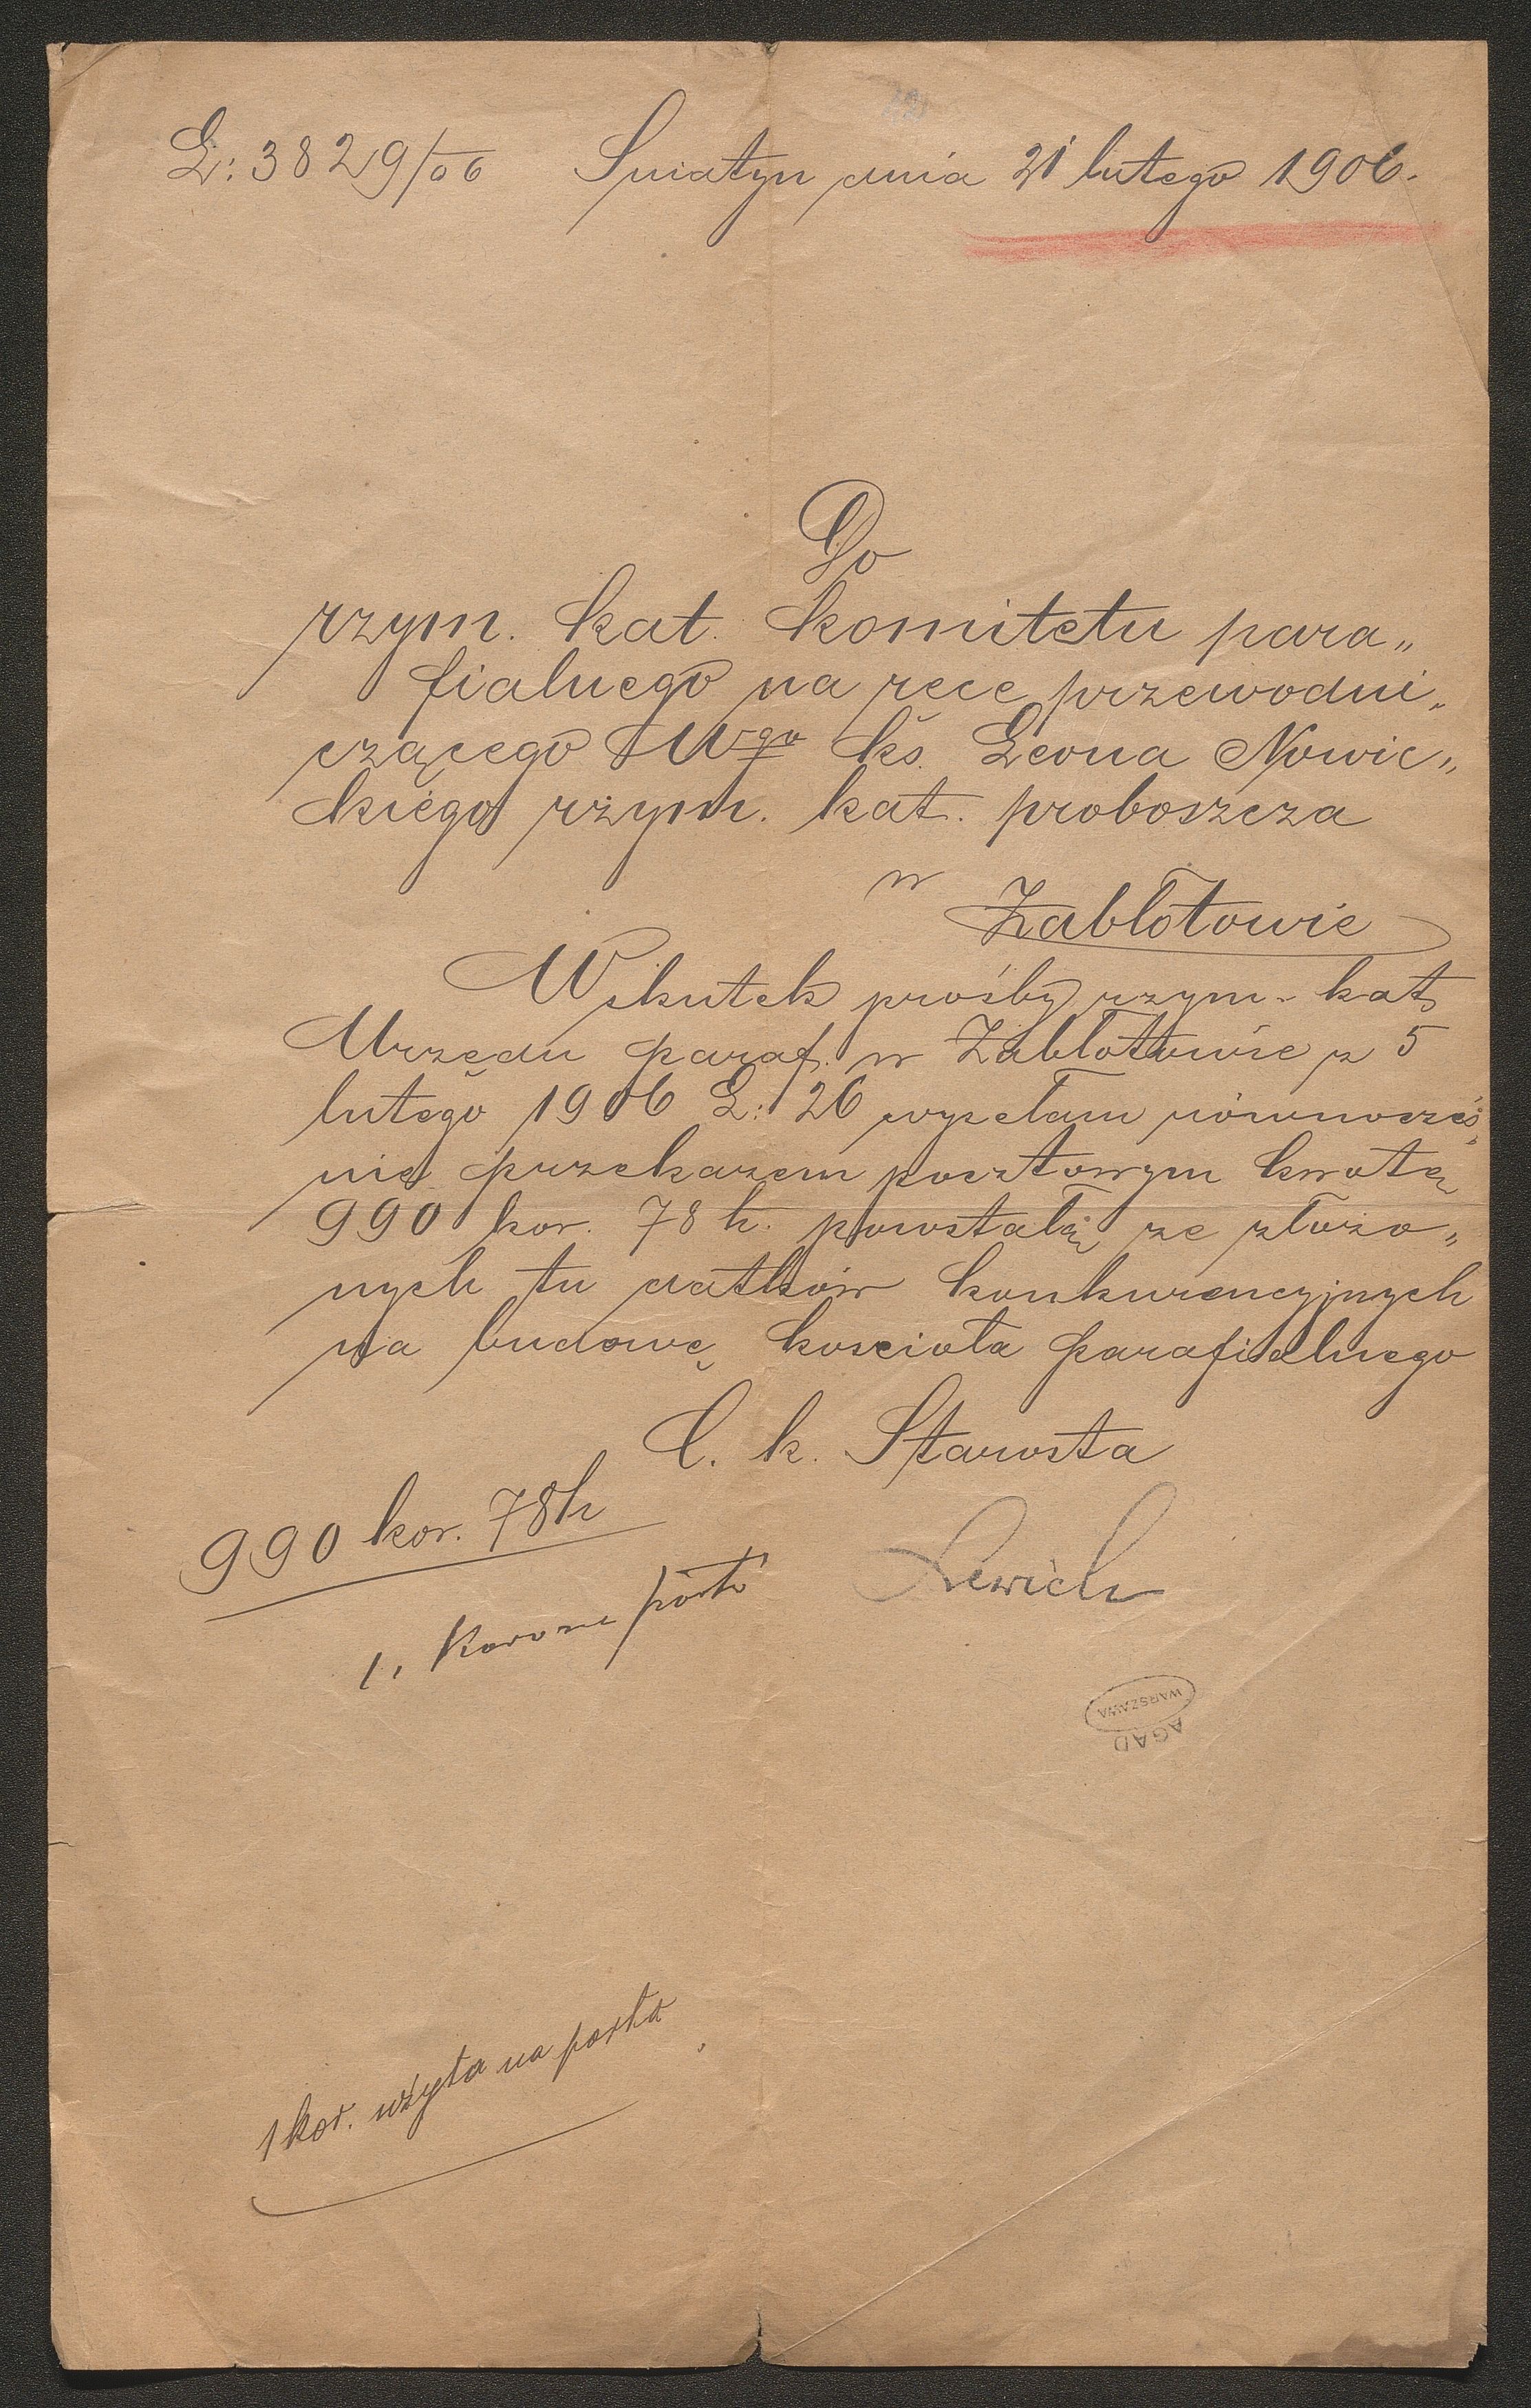 L: 3829/06 Sniatyn dnia 21 lutego 1906.
Do
rzym. kat. komitetu para„
fialnego na ręce przewodni„
czącego Wgo ks. Leona Nowic„
kiego rzym. kat. proboszcza
w
Zabłotowie
Wskutek prośby rzym. kat.
Urzędu paraf. w Zabłotowie z 5
lutego 1906 L: 26 wysełam równocześ„
nie przekazem pocztowym kwotę
990 kor. 78 h. powstałą ze złożo„
nych tu datków konkurencyjnych
na budowę kościoła parafialnego
C. k. Starosta
990 kor. 78 h
1. Korona porto
WARSZAWA
AGAD
1 kor. użyta na porto